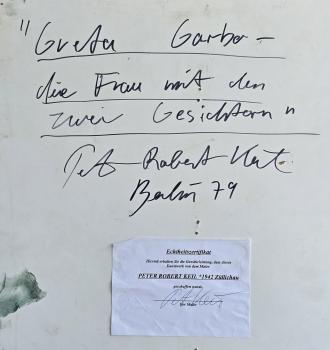 "Greta Garbo –
die Frau mit den
zwei Gesichtern"
Peter Robert Keil
Berlin 79
Echtheitszertifikat
Hiermit erhalten Sie die Gewährleistung, dass dieses
Kunstwerk von dem Maler
PETER ROBERT KEIL *1942 Züllichau
geschaffen wurde.
Der Maler